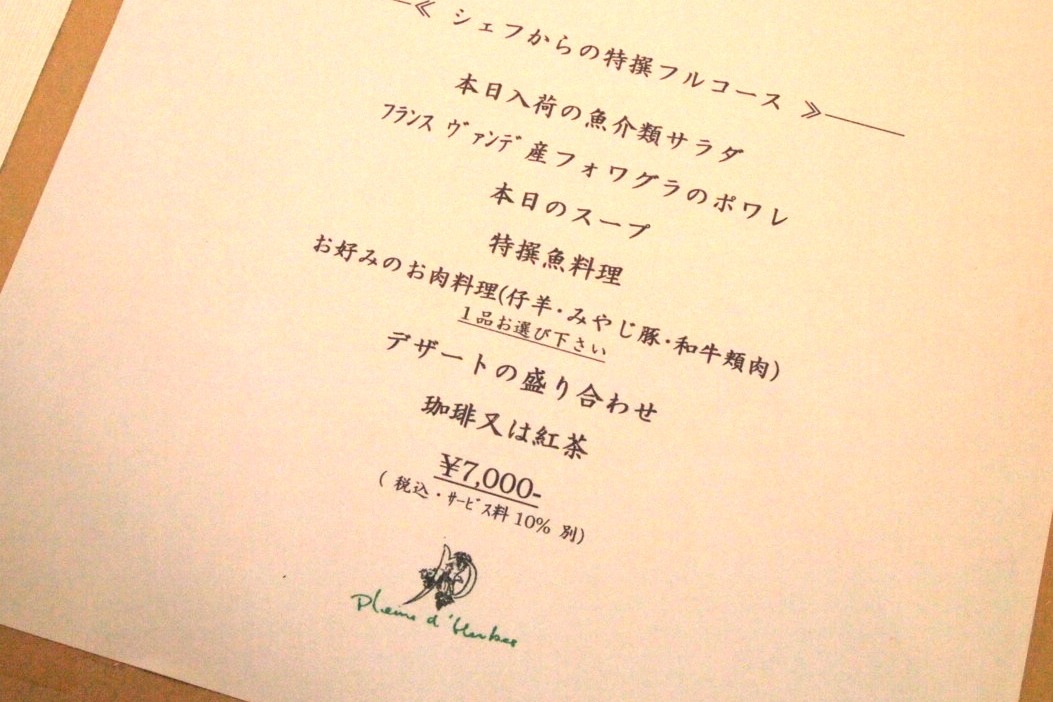 ≪ シェフからの特撰フルコース ≫
本日入荷の魚介類サラダ
フランス ヴァンデ産フォワグラのポワレ
本日のスープ
特撰魚料理
お好みのお肉料理(仔羊・みやじ豚・和牛頬肉)
1品お選び下さい
デザートの盛り合わせ
珈琲又は紅茶
¥7,000-
( 税込・サービス料 10% 別)
Pleins d'Herbes